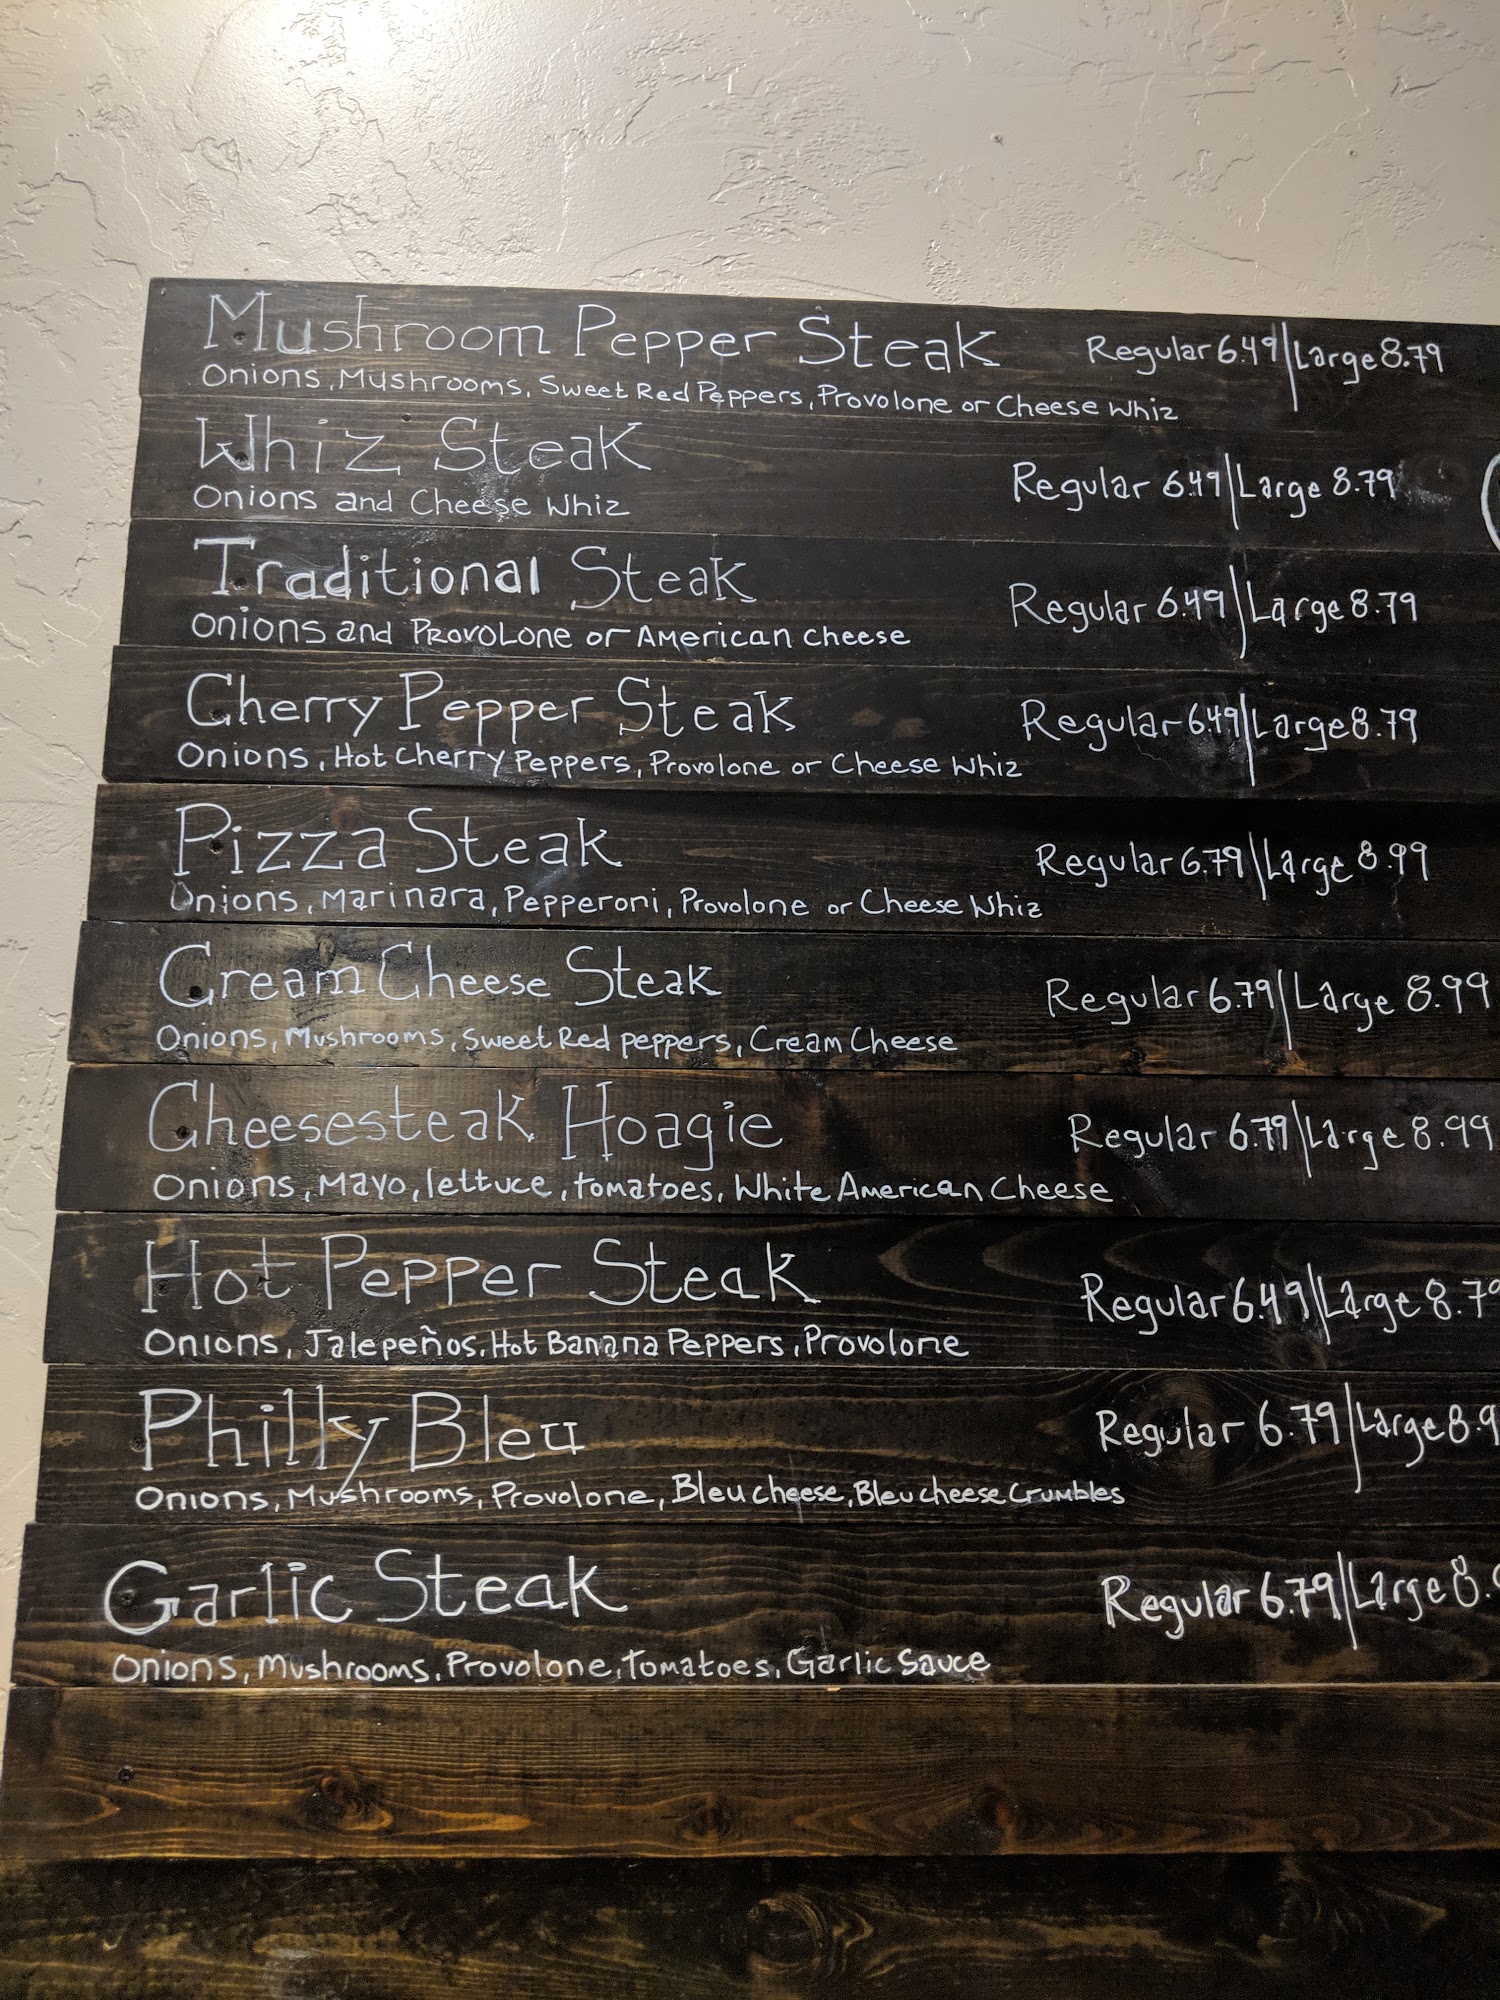 Mushroom Pepper Steak Regular 6.49 | Large 8.79
Onions, Mushrooms, Sweet Red Peppers, Provolone or Cheese Whiz
Whiz Steak Regular 6.49 | Large 8.79
Onions and Cheese Whiz
Traditional Steak Regular 6.49 | Large 8.79
Onions and Provolone or American cheese
Cherry Pepper Steak Regular 6.49 | Large 8.79
Onions, Hot Cherry Peppers, Provolone or Cheese Whiz
Pizza Steak Regular 6.79 | Large 8.99
Onions, Marinara, Pepperoni, Provolone or Cheese Whiz
Cream Cheese Steak Regular 6.79 | Large 8.99
Onions, Mushrooms, Sweet Red peppers, Cream Cheese
Cheesesteak Hoagie Regular 6.79 | Large 8.99
Onions, Mayo, lettuce, tomatoes, White American Cheese
Hot Pepper Steak Regular 6.49 | Large 8.79
Onions, Jalepeños, Hot Banana Peppers, Provolone
Philly Bleu Regular 6.79 | Large 8.9
Onions, Mushrooms, Provolone, Bleu cheese, Bleu cheese Crumbles
Garlic Steak Regular 6.79 | Large 8.
Onions, Mushrooms, Provolone, Tomatoes, Garlic Sauce